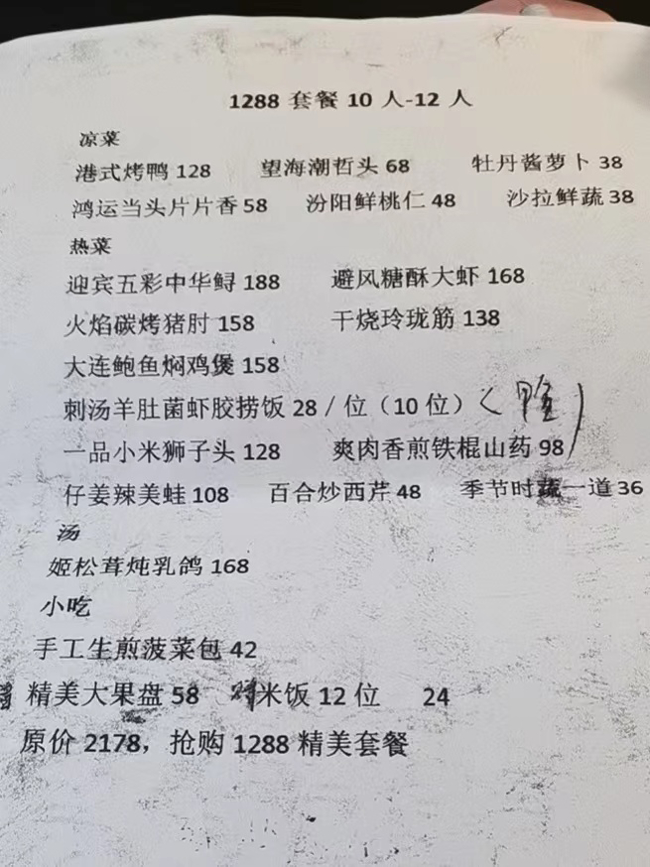 1288 套餐 10 人-12 人
凉菜
港式烤鸭 128 望海潮哲头 68 牡丹酱萝卜 38
鸿运当头片片香 58 汾阳鲜桃仁 48 沙拉鲜蔬 38
热菜
迎宾五彩中华鲟 188 避风糖酥大虾 168
火焰碳烤猪肘 158 干烧玲珑筋 138
大连鲍鱼焖鸡煲 158
刺汤羊肚菌虾胶捞饭 28 / 位（10 位）（ ）
一品小米狮子头 128 爽肉香煎铁棍山药 98
仔姜辣美蛙 108 百合炒西芹 48 季节时蔬一道 36
汤
姬松茸炖乳鸽 168
小吃
手工生煎菠菜包 42
精美大果盘 58 米饭 12 位 24
原价 2178，抢购 1288 精美套餐